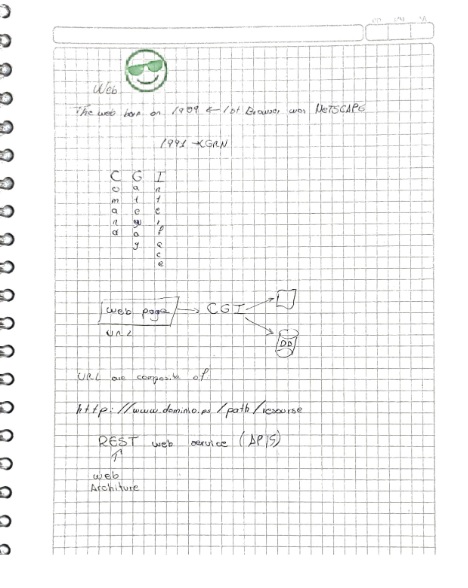 Web
The web born on 1989 ← 1st Browser was NETSCAPE
1991 → CERN
C G I
Command Gateway Interface
web page → CGI
URL
DD
URL are composite of
http://www.dominio.ps/path/resourse
REST web service (APIS)
web
Architure